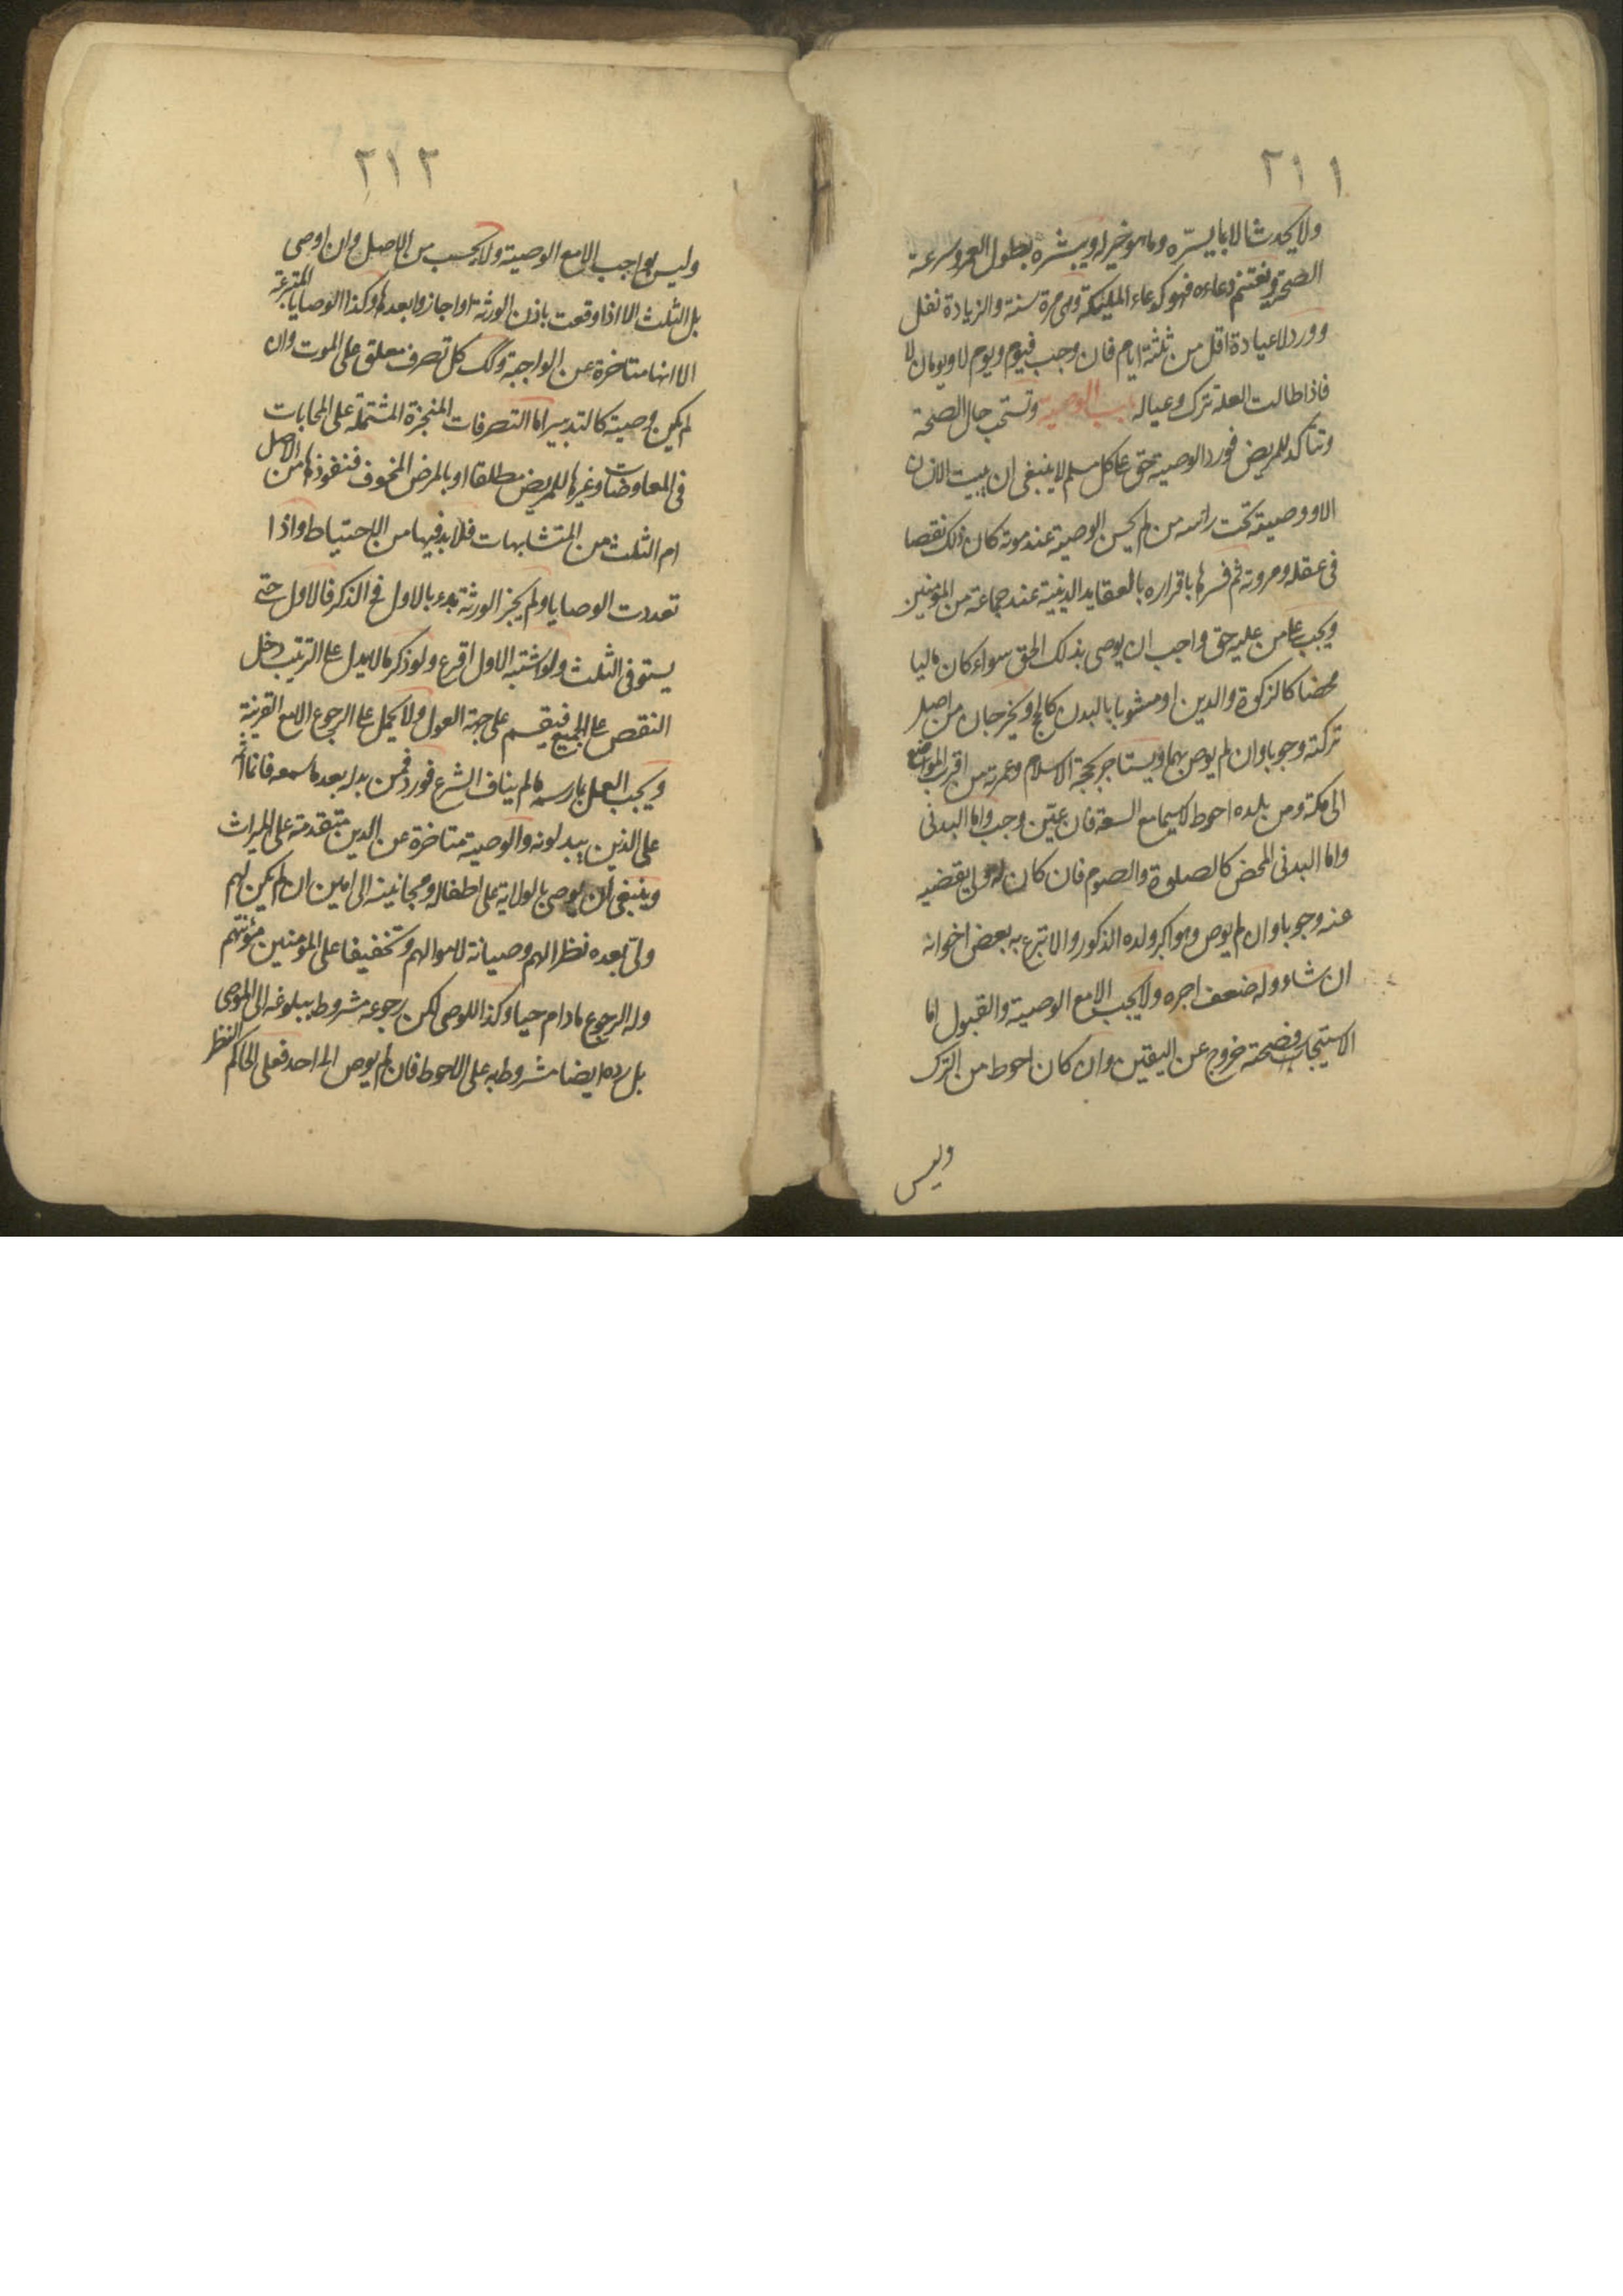 ٢١١
ولا يحدث الا بما يسرّه وما هو خير له ويبشره بطول العمر وسرعة
الصحة ويغتنم دعاءه فهو كدعاء الملئكة وهى مرة سنة والزيادة نفل
وورد لا عيادة اقل من ثلثة ايام فان وجب فيوم ويوم لا ويومان لا
فاذا طالت العلة ترك وعياله باب الوصية وتستحب حال الصحة
وتتأكد للمريض فورد الوصية حق على كل مسلم لا ينبغى ان يبيت الانسان
الا ووصيته تحت راسه من لم يحسن الوصية عند موته كان ذلك نقصا
فى عقله ومروته ثم فسرها باقراره بالعقايد الدينية عند جماعة من المؤمنين
ويجب على من عليه حق واجب ان يوصى بذلك الحق سواء كان ماليا
محضا كالزكوة والدين او مشوبا بالبدن كالحج ويخرجان من اصل
تركته وجوبا وان لم يوص بهما ويستاجر لحجة الاسلام وعمرته من اقرب المواضع
الى مكة ومن بلده احوط لاسيما مع السعة فان عيّن وجب واما البدنى
واما البدنى المحض كالصلوة والصوم فان كان له ولى يقضيه
عنه وجوبا وان لم يوص وهو اكبر ولده الذكور والا تبرع به بعض اخوانه
ان شاء وله ضعف اجره ولا يجب الا مع الوصية والقبول اما
الاستيجار فصحته خروج عن اليقين وان كان احوط من الترك
وليس
٢١٢
وليس بواجب الا مع الوصية ولا يحسب من الاصل وان اوصى
بل الثلث الا اذا وقعت باذن الورثة او اجازوا بعدها وكذا الوصايا المتبرعة
الا انها متاخرة عن الواجبة وكك كل تصرف معلق على الموت وان
لم يكن وصية كالتدبير اما التصرفات المنجزة المشتملة على المحابات
فى المعاوضات وغيرها للمريض مطلقا او بالمرض المخوف فنفوذها من الاصل
ام الثلث من المتشابهات فلا بد فيها من الاحتياط واذا
تعددت الوصايا ولم يجز الورثة بدء بالاول فى الذكر فالاول حتى
يستوفى الثلث ولو اشتبه الاول اقرع ولو ذكر ما لا يدل على الترتيب دخل
النقص على الجميع فيقسم على جهة العول ولا يحمل على الرجوع الا مع القرينة
ويجب العمل بما رسمه ما لم يناف الشرع فورد فمن بدله بعد ما سمعه فانما اثمه
على الذين يبدلونه والوصية متاخرة عن الدين متقدمة على الميراث
وينبغى ان يوصى بالولاية على اطفاله ومجانينه الى امين ان لم يكن لهم
ولى بعده نظرا لهم وصيانة لاموالهم وتخفيفا على المؤمنين مؤنتهم
وله الرجوع مادام حيا وكذا للوصى لكن رجوعه مشروط ببلوغه الى الموصى
بل رده ايضا مشروط به على الاحوط فان لم يوص الى احد فعلى الحاكم النظر